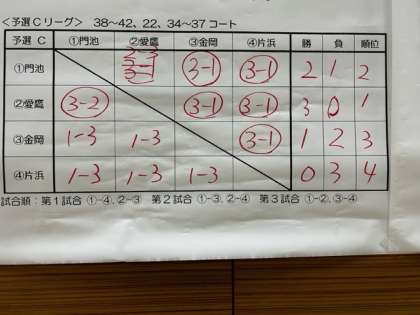 <予選Cリーグ> 38~42、22、34~37コート
予選 C ①門池 ②愛鷹 ③金岡 ④片浜 勝 負 順位
①門池 3-1 3-1 2 1 2
②愛鷹 3-2 3-1 3-1 3 0 1
③金岡 1-3 1-3 3-1 1 2 3
④片浜 1-3 1-3 1-3 0 3 4
試合順:第1試合 ①-4、2-3 第2試合 ①-3、2-4 第3試合 ①-2、3-4